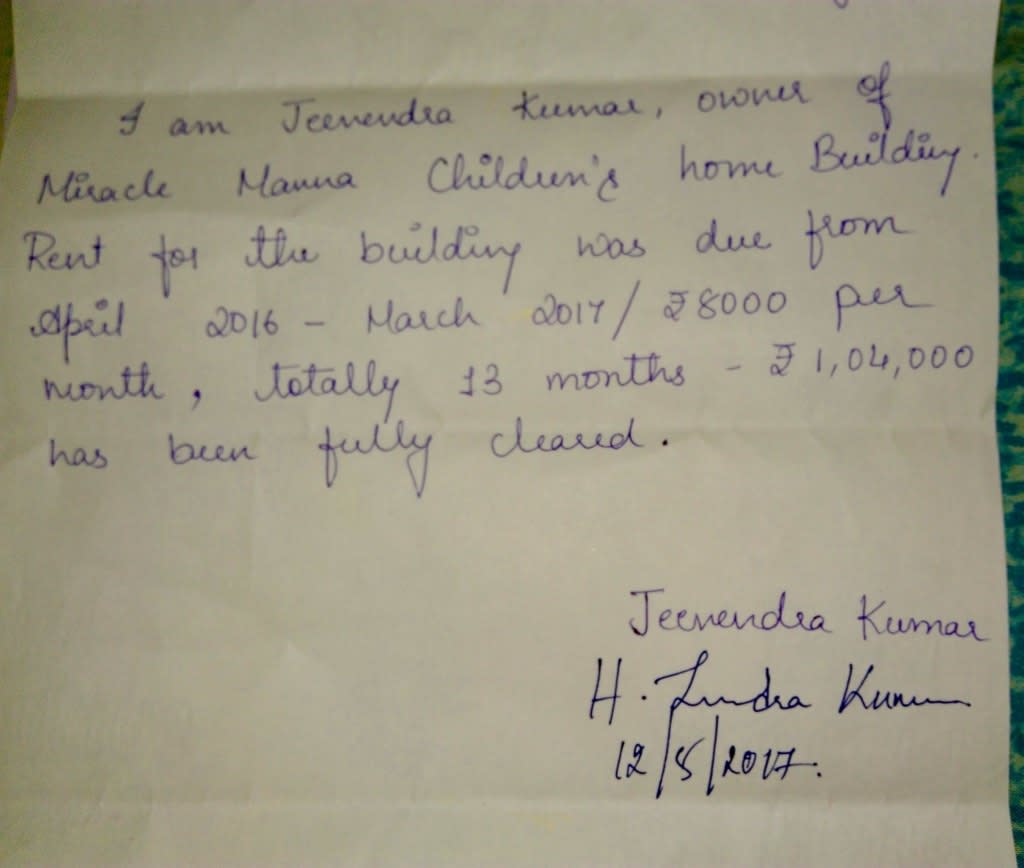 I am Jeenendra Kumar, owner of
Miracle Manna Children's home Building.
Rent for the building was due from
April 2016 - March 2017 / ₹8000 per
month, totally 13 months - ₹1,04,000
has been fully cleared.
Jeenendra Kumar
H. Kumar
12/5/2017.